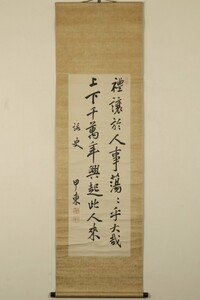 禮讓於人事蕩〻乎大哉
上下千萬年興起此人来
詠史
甲東